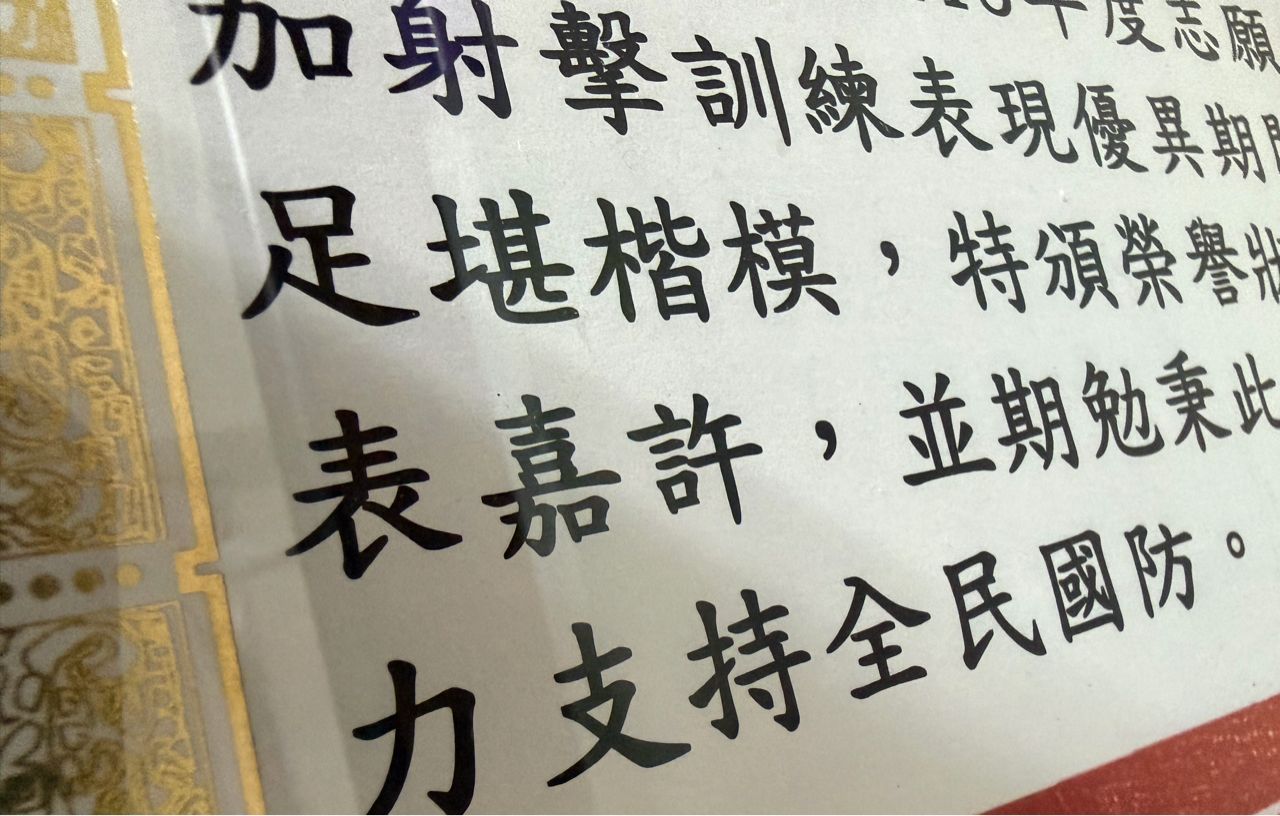 年度志願
加射擊訓練表現優異期
足堪楷模，特頒榮譽狀
表嘉許，並期勉秉此
力支持全民國防。